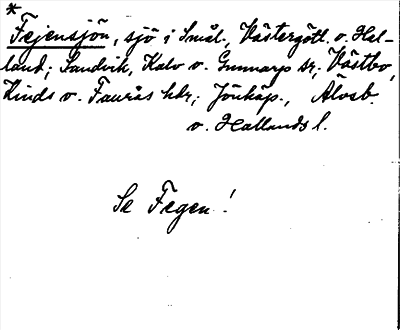 *
Fejensjön, sjö i Smål., Västergötl. o. Hal-
land; Sandvik, Kalv o. Gunnarp sr; Västbo,
Kinds o. Faurås hdr; Jönköp., Älvsb.
o. Hallands l.
Se Fegen!